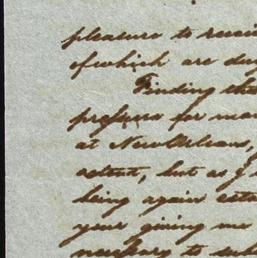 pleasure to recei
of which are du
Finding tha
profess for ma
at New Orleans,
extent, but as I
being again esta
your giving me
necessary to sub